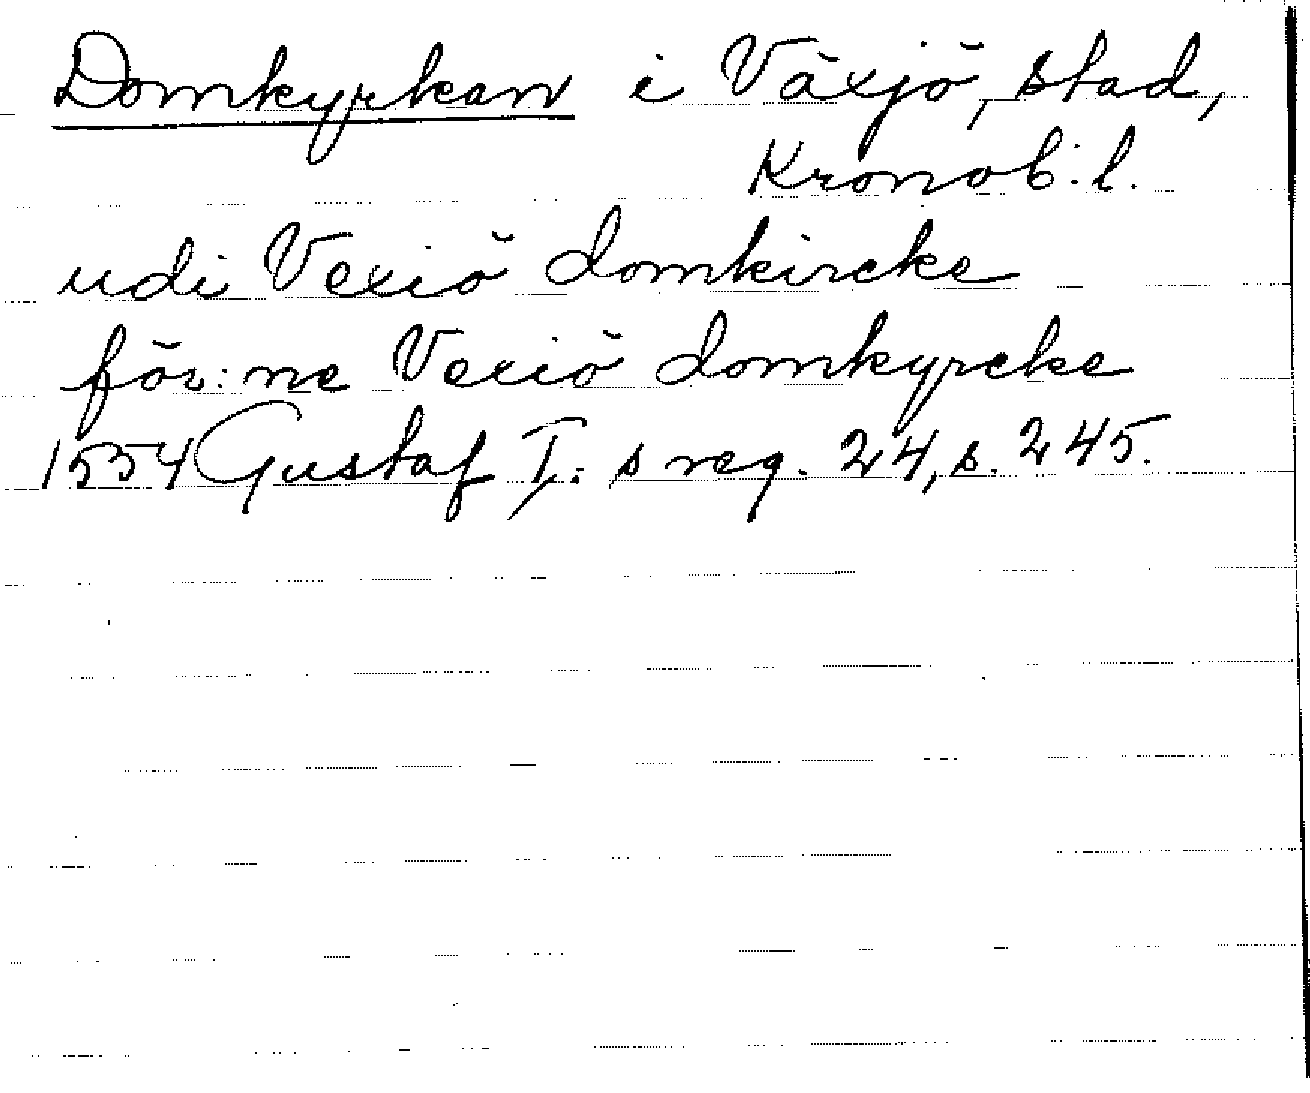 Domkyrkan i Växjö, stad,
Kronob. l.
udi Vexiö domkircke
för:ne Vexiö domkyrcke
1554 Gustaf I:s reg. 24, s. 245.